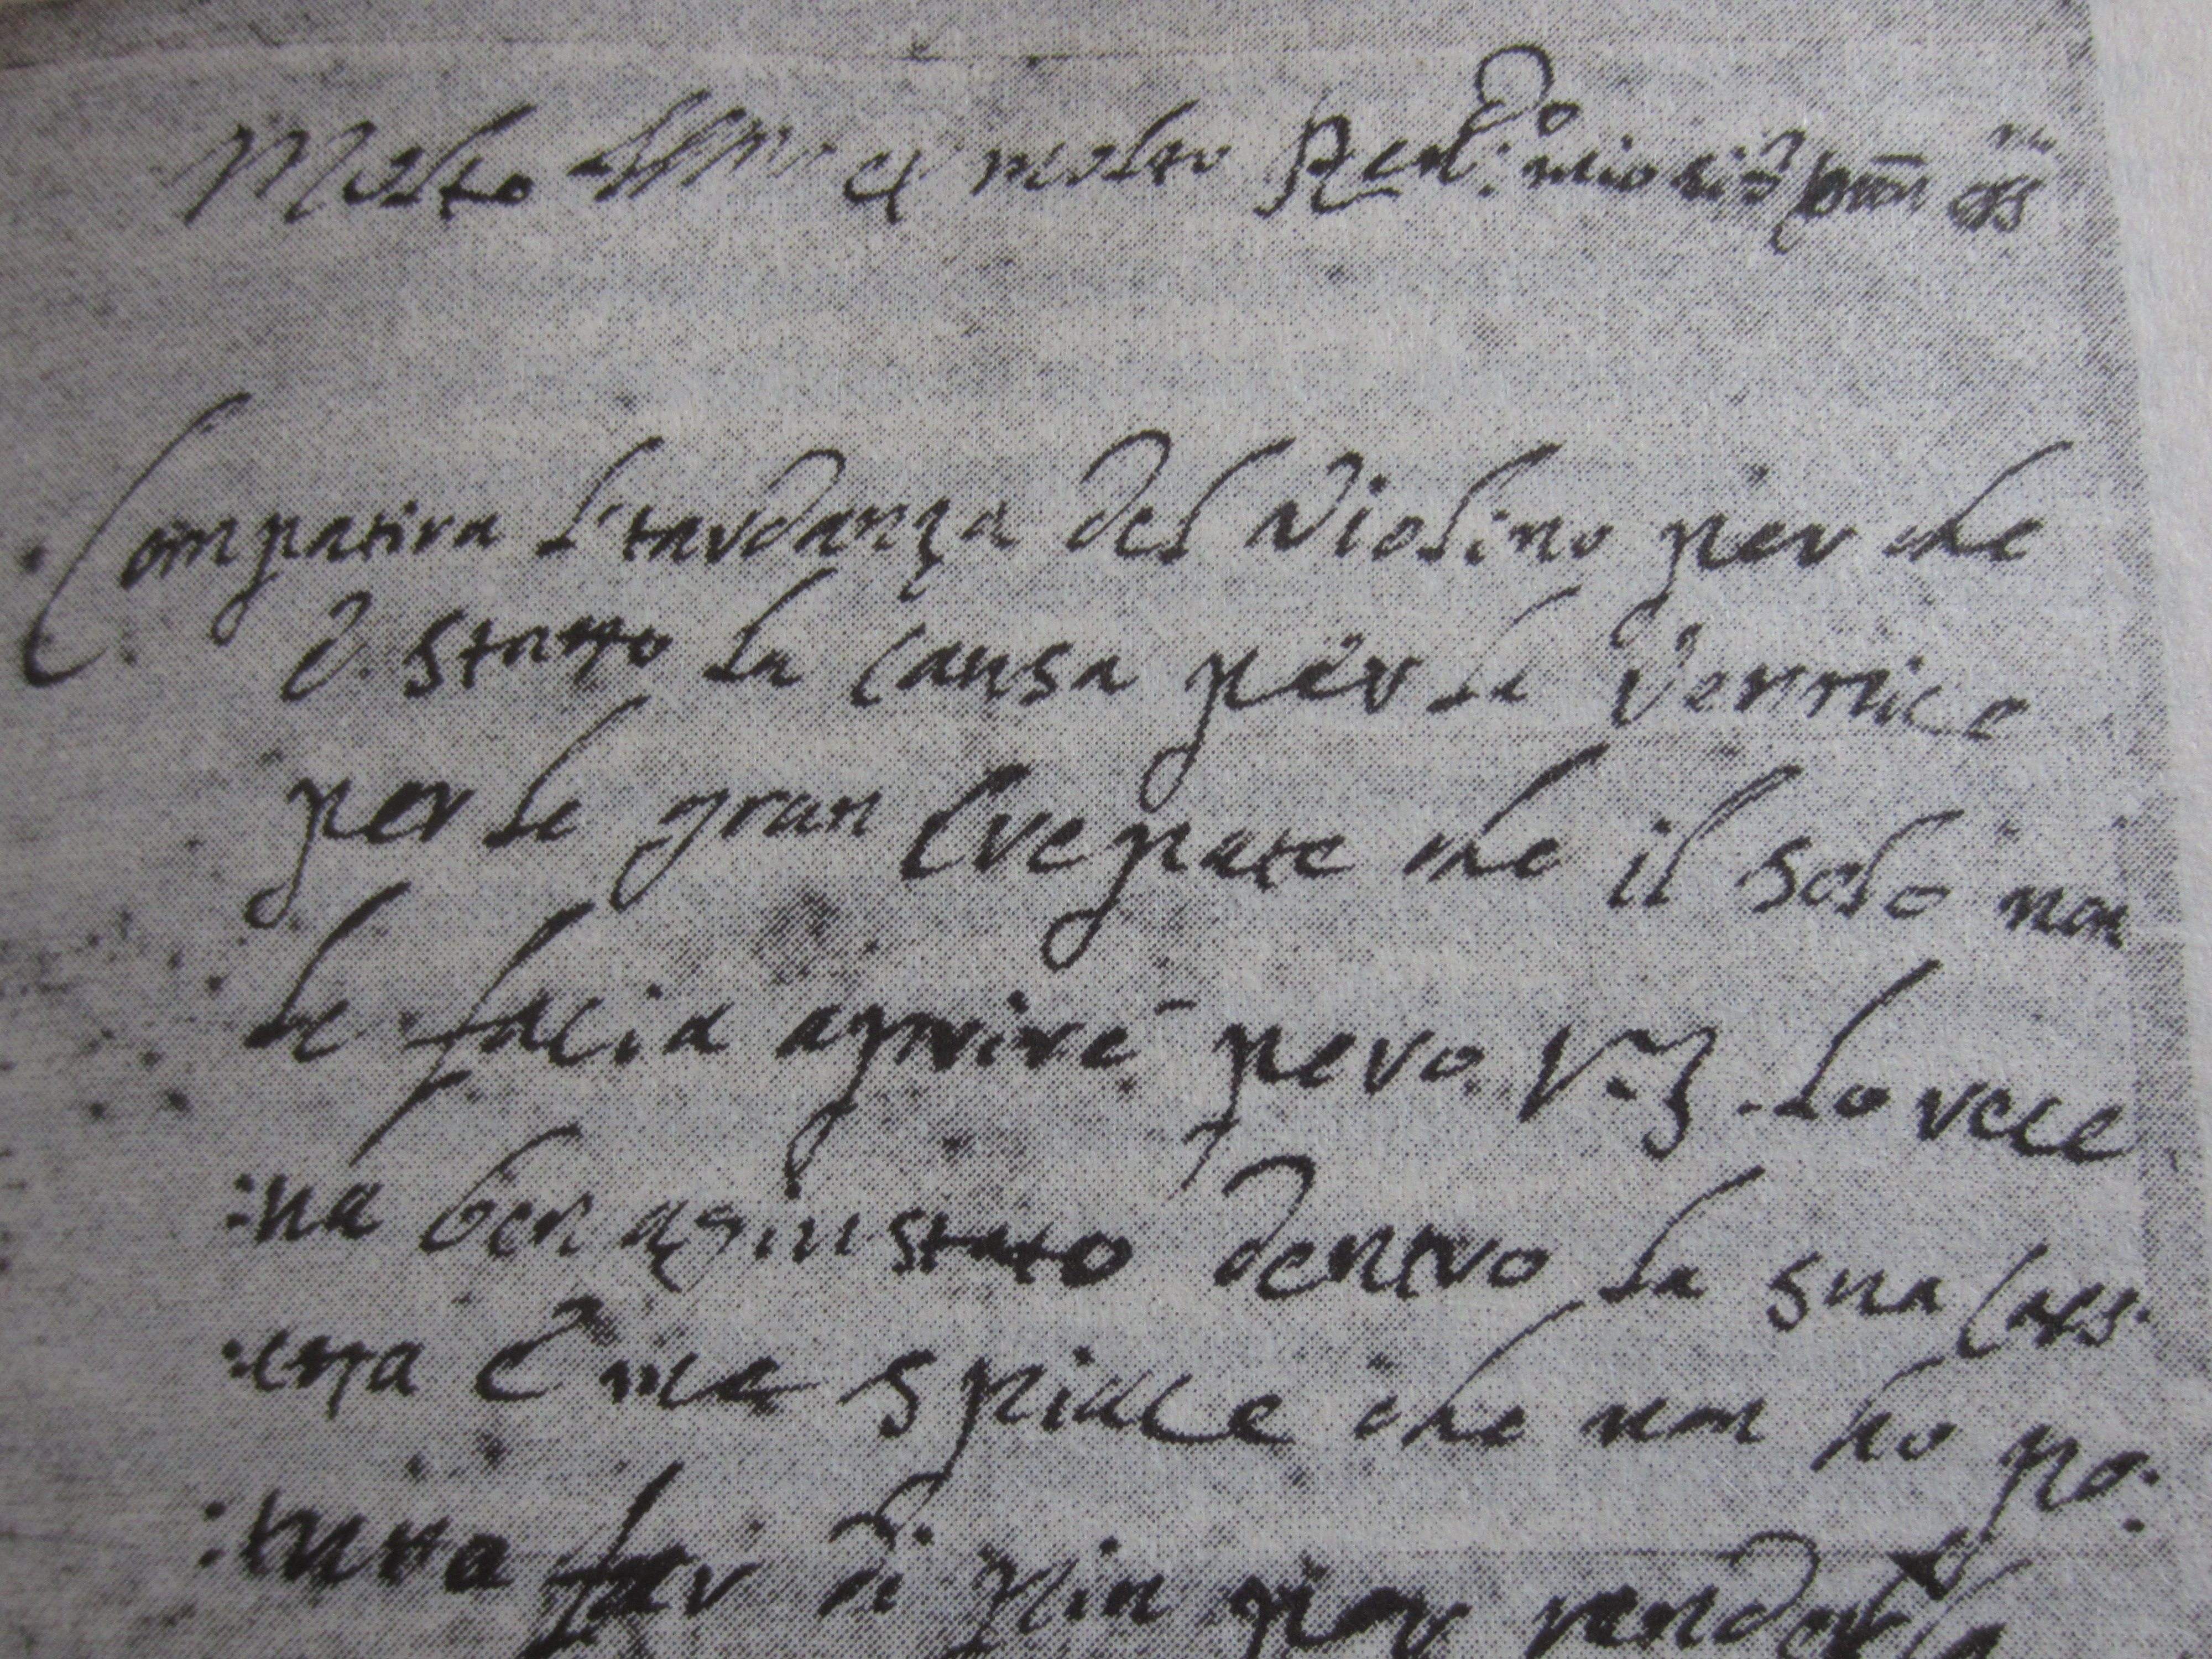 Molto Illmo et molto Rend:do mio sig.r pron oss
Compatira l'tardanza del Violino per che
è. statto la causa per la Vernice
per le gran Crepate che il solo non
le facia aprire pero V.S. lo rece
:va ben agiustato dentro la sua Cass:
:etta è me spiace che non ho po:
:tutto far di piu per renderla